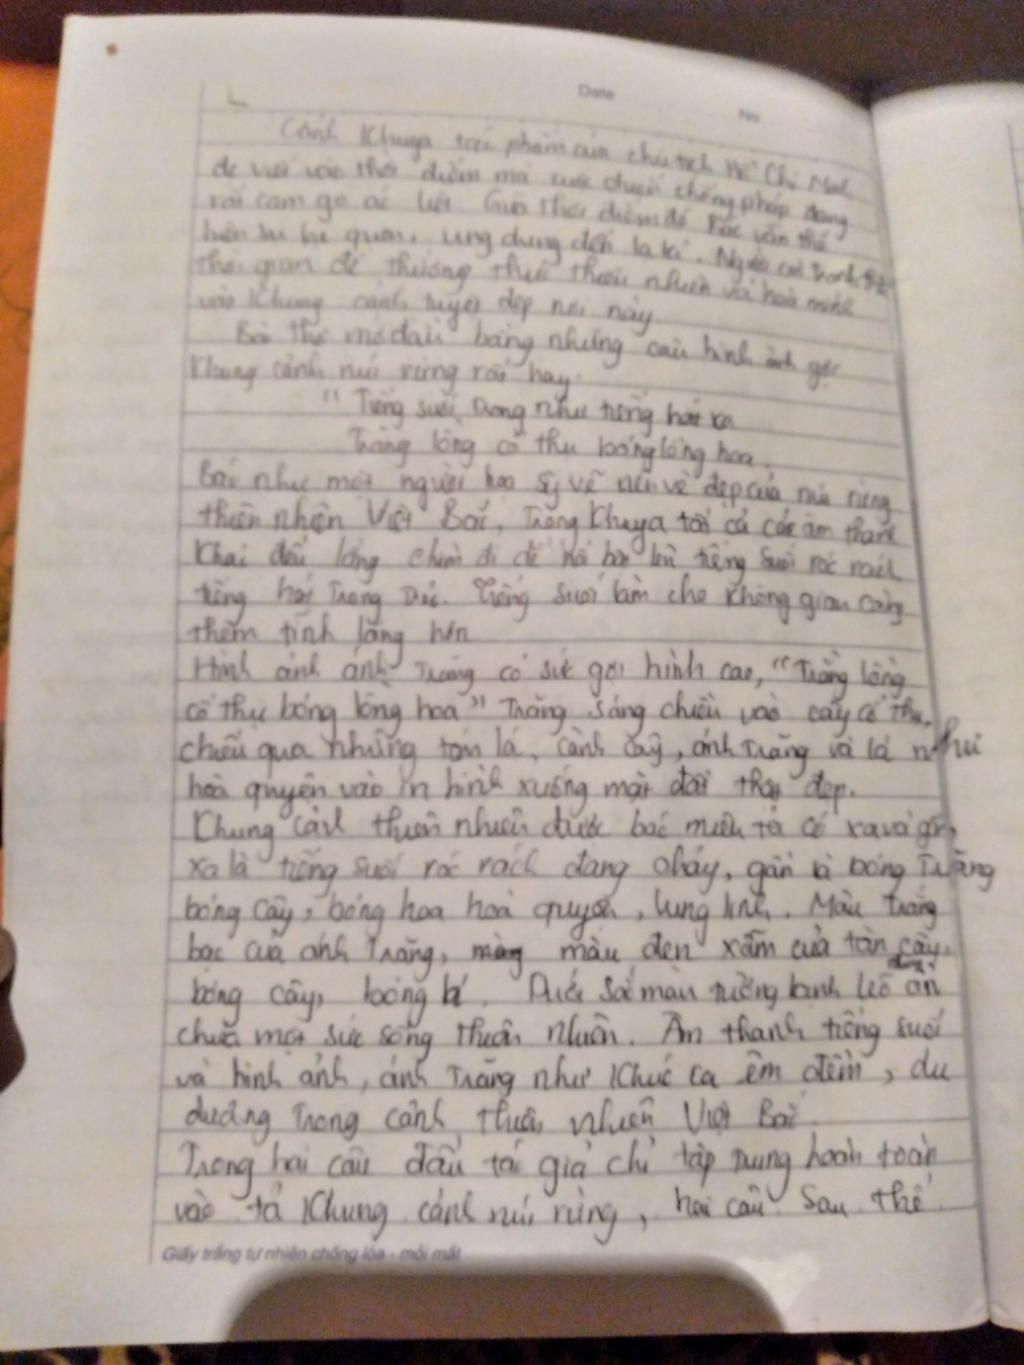 Date
No
Cảnh Khuya tác phẩm của chủ tịch Hồ Chí Minh
thời điểm mà cuộc chiến chống pháp đang
rất cam go ác liệt. Giữa thời điểm đó Bác vẫn thể
hiện sự lạc quan, ung dung đến lạ kì. Người
thời gian để thưởng thức thiên nhiên và hoà mình
vào khung cảnh tuyệt đẹp nơi này
Bài thơ mở đầu bằng những câu hình ảnh gợi
khung cảnh núi rừng rất hay:
" Tiếng suối trong như tiếng hát xa
Trăng lồng cổ thụ bóng lồng hoa.
Bác như một người hoạ sỹ vẽ nên vẻ đẹp của núi rừng
thiên nhiên Việt Bắc, Trong khuya tất cả các âm thanh
đều lắng chìm đi để tiếng suối róc rách
tiếng hát Trong Tiếng suối làm cho không gian càng
thêm tĩnh lặng hơn
Hình ảnh ánh Trăng có sức gợi hình cao, "Trăng lồng
cổ thụ bóng lồng hoa" Trăng sáng chiếu vào cây cổ thụ,
chiếu qua những tán lá, cành cây, ánh Trăng và lá như
hoà quyện vào in hình xuống mặt đất thật đẹp.
Khung cảnh thiên nhiên được bác miêu tả có xa và gần
xa là tiếng suối róc rách đang chảy, gần là bóng Trăng
bóng cây, bóng hoa hoà quyện, lung linh. Màu trắng
bạc của ánh Trăng, màu đen xẫm của tán cây,
bóng cây, bóng lá. Dưới sắc màu tưởng lạnh lẽo ẩn
chứa một sức sống thiên nhiên. Âm thanh tiếng suối
và hình ảnh, ánh Trăng như khúc ca êm đềm, du
dương Trong cảnh thiên nhiên Việt Bắc.
Trong hai câu đầu tác giả chỉ tập trung hoàn toàn
vào tả khung cảnh núi rừng, hai câu sau thể
Giấy trắng tự nhiên chống lóa - mỏi mắt